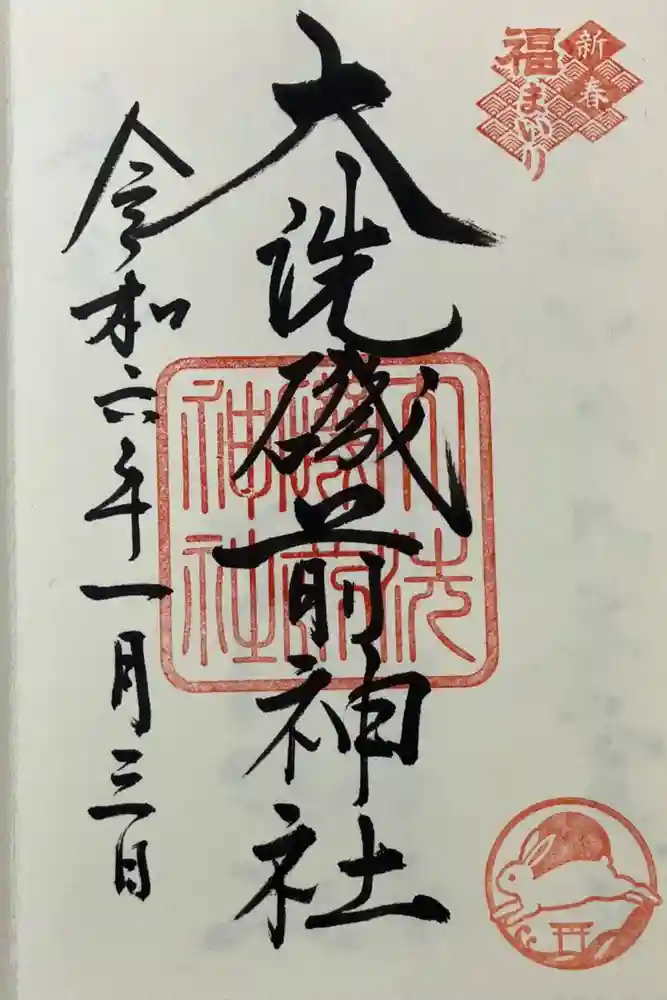 新春
福まいり
大洗磯前神社
大洗
磯前
神社
令和六年一月三日